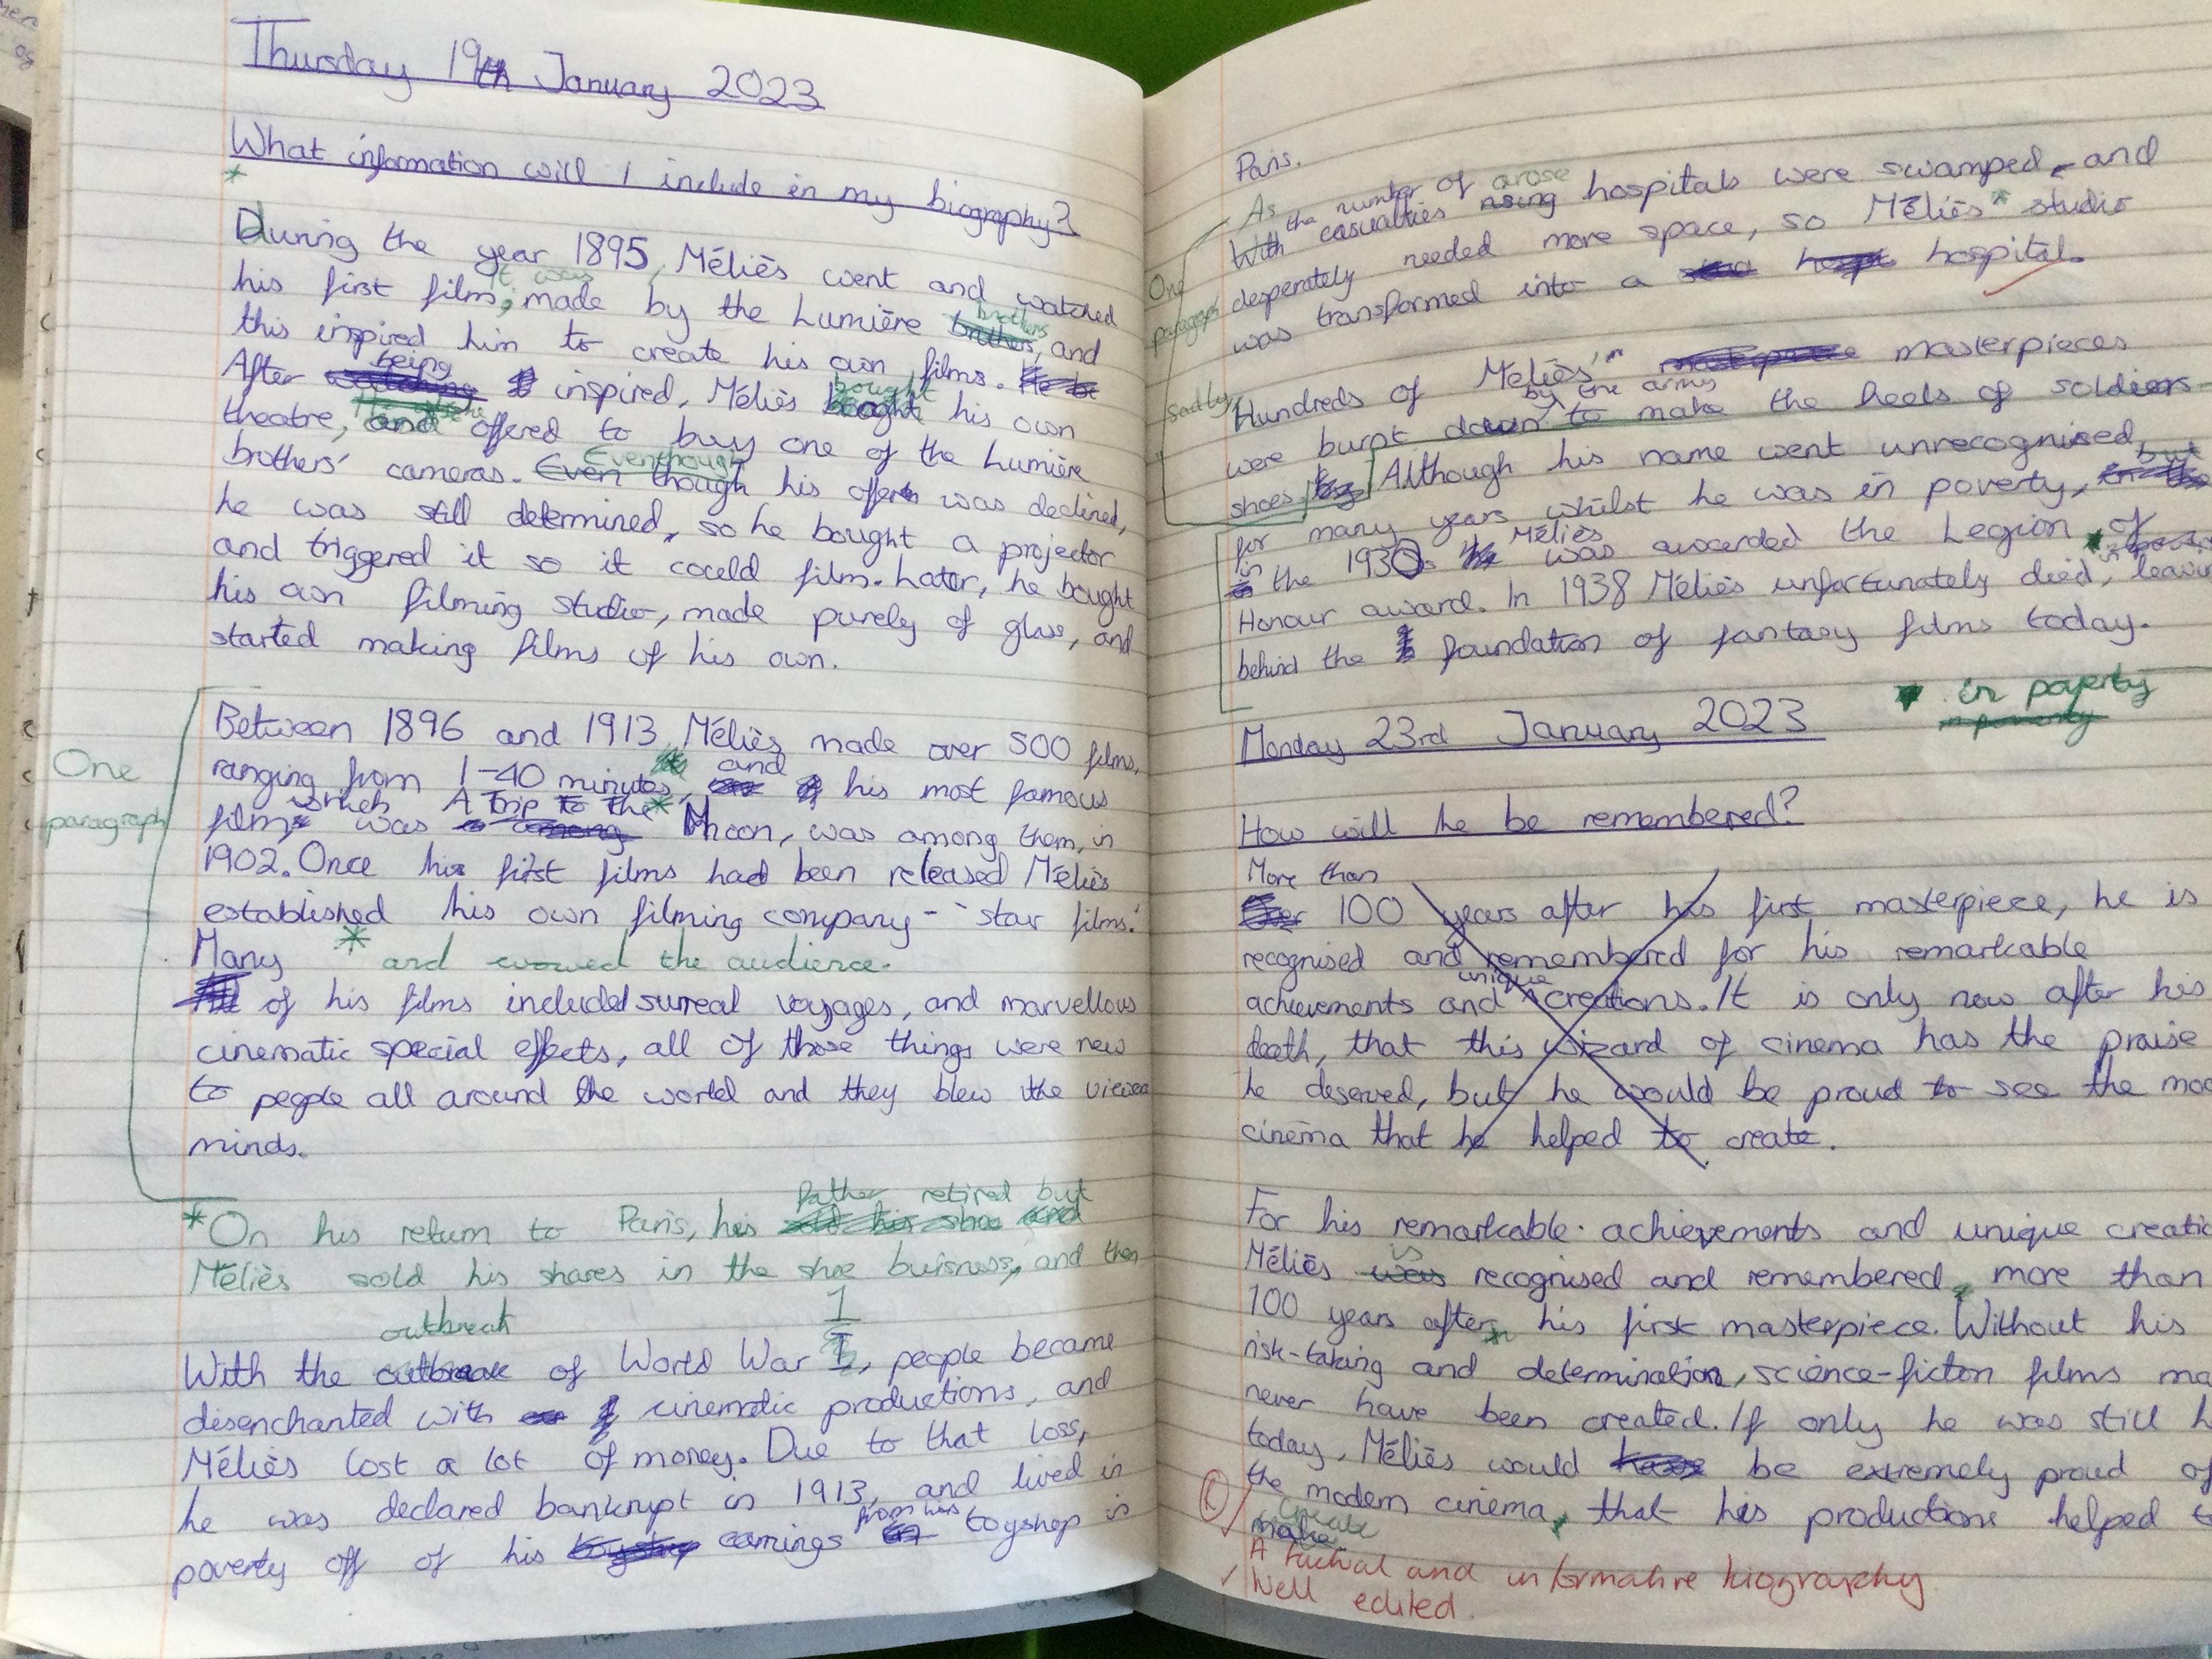 Thursday 19th January 2023
What information will I include in my biography?
*
During the year 1895, Méliès went and watched
it was
his first film; made by the Lumière brothers, and
brothers
this inspired him to create his own films.
being
After inspired, Méliès bought his own
bought
theatre, and offered to buy one of the Lumière
brothers' cameras. Even though his offer was declined,
Eventhough
he was still determined, so he bought a projector
and triggered it so it could film. Later, he bought
his own filming studio, made purely of glass, and
started making films of his own.
One
paragraph
Between 1896 and 1913, Méliès made over 500 films,
ranging from 1-40 minutes, and his most famous
film which was A Trip to the* Moon, was among them, in
1902. Once his first films had been released Méliès
established his own filming company - 'star films.'
* and wowed the audience.
Many of his films included surreal voyages, and marvellous
cinematic special effects, all of those things were new
to people all around the world and they blew the
minds.
father retired but
*On his return to Paris, his sold his shoe and
Méliès sold his shares in the shoe buisness, and then
outbreak 1
With the outbreak of World War I, people became
disenchanted with cinematic productions, and
Méliès lost a lot of money. Due to that loss,
he was declared bankrupt in 1913, and lived in
from his
poverty off of his toyshop earnings toyshop in
Paris.
As the number of arose
With casualties rising hospitals were swamped, and
One
paragraph
desperately needed more space, so Méliès* studio
was transformed into a hospital.
Sadly,
Hundreds of Méliès' masterpieces
by the army
were burnt down to make the heels of soldiers
shoes. Although his name went unrecognised,
for many years whilst he was in poverty, but
in the 1930s Méliès was awarded the Legion * of
Honour award. In 1938 Méliès unfortunately died,
behind the foundation of fantasy films today.
* in poverty
in poverty
Monday 23rd January 2023
How will he be remembered?
More than
Over 100 years after his first masterpiece, he is
recognised and remembered for his remarkable
unique
achievements and creations. It is only now after his
death, that this wizard of cinema has the praise
he deserved, but he would be proud to see the
cinema that he helped to create.
For his remarkable achievements and unique
is
Méliès was recognised and remembered, more than
100 years after, his first masterpiece. Without his
risk-taking and determination, science-ficton films
never have been created. If only he was still
today, Méliès would have be extremely proud of
the modern cinema, that his productions helped
create
make
A factual and informative biography.
Well edited.